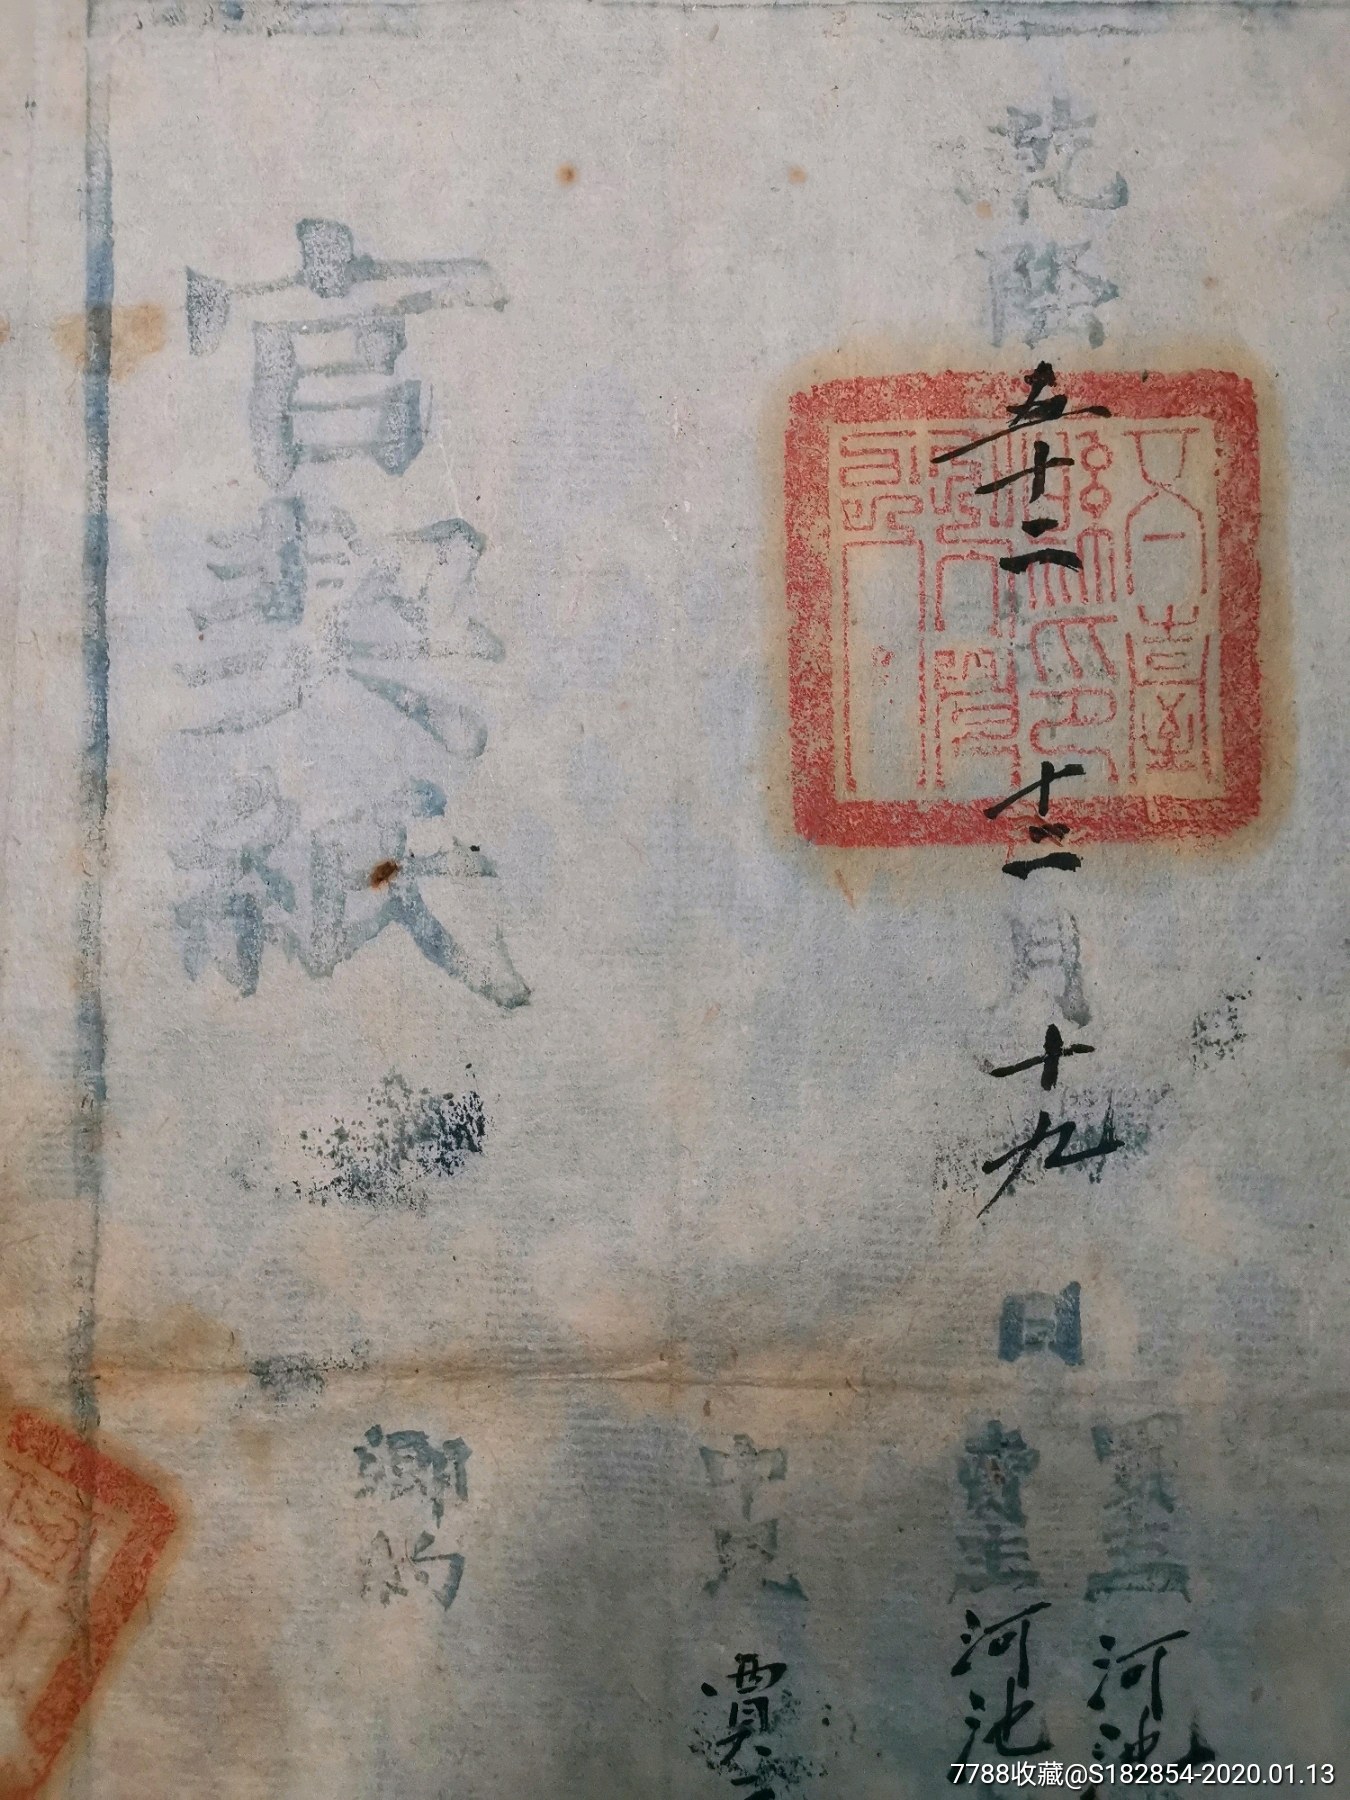 買主河池
乾隆五十二年十二月十九日
賣主河池
五臺縣印
中見賈
鄉約
官契紙
7788收藏@S182854-2020.01.13